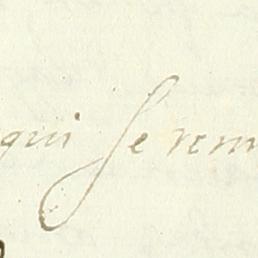 qui se rem